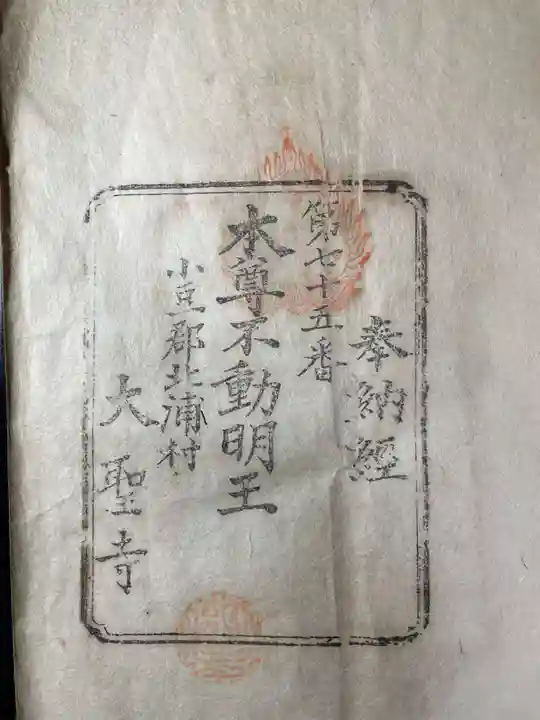 奉納經
第七十五番
本尊不動明王
小豆郡北浦村
大聖寺